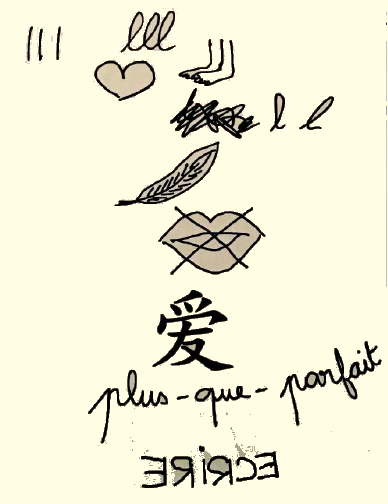 lll lll
l l
爱
plus-que-parfait
ECRIRE